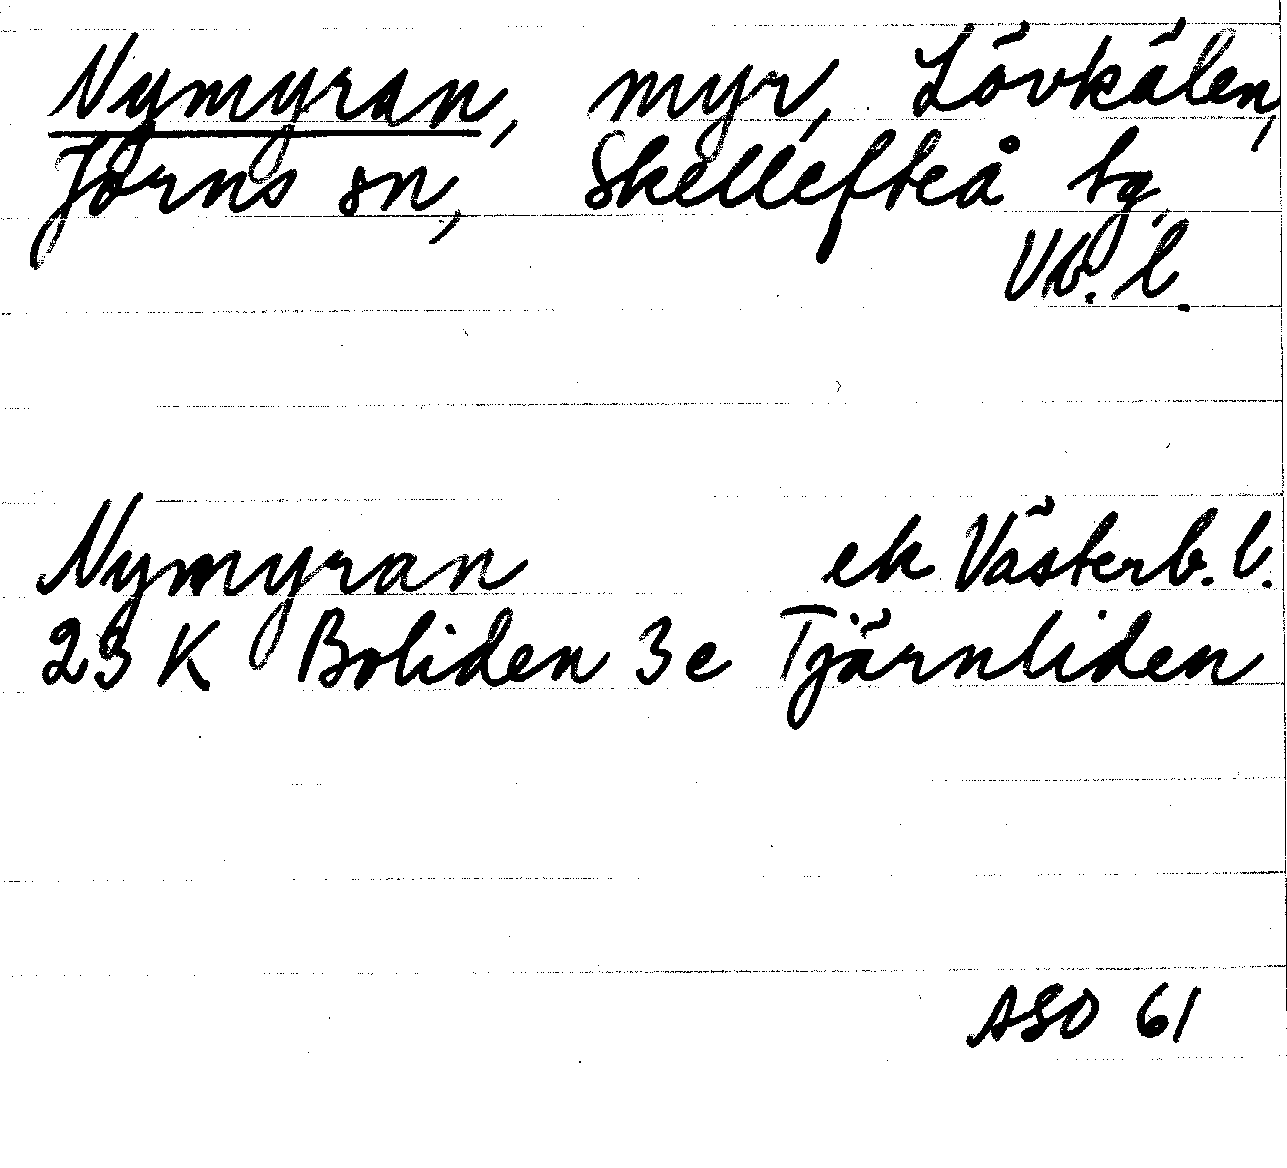 Nymyran, myr, Lövkälen,
Jörns sn, Skellefteå tg
Vb. l.
Nymyran ek Västerb. l.
23 K Boliden 3e Tjärnliden
ASO 61